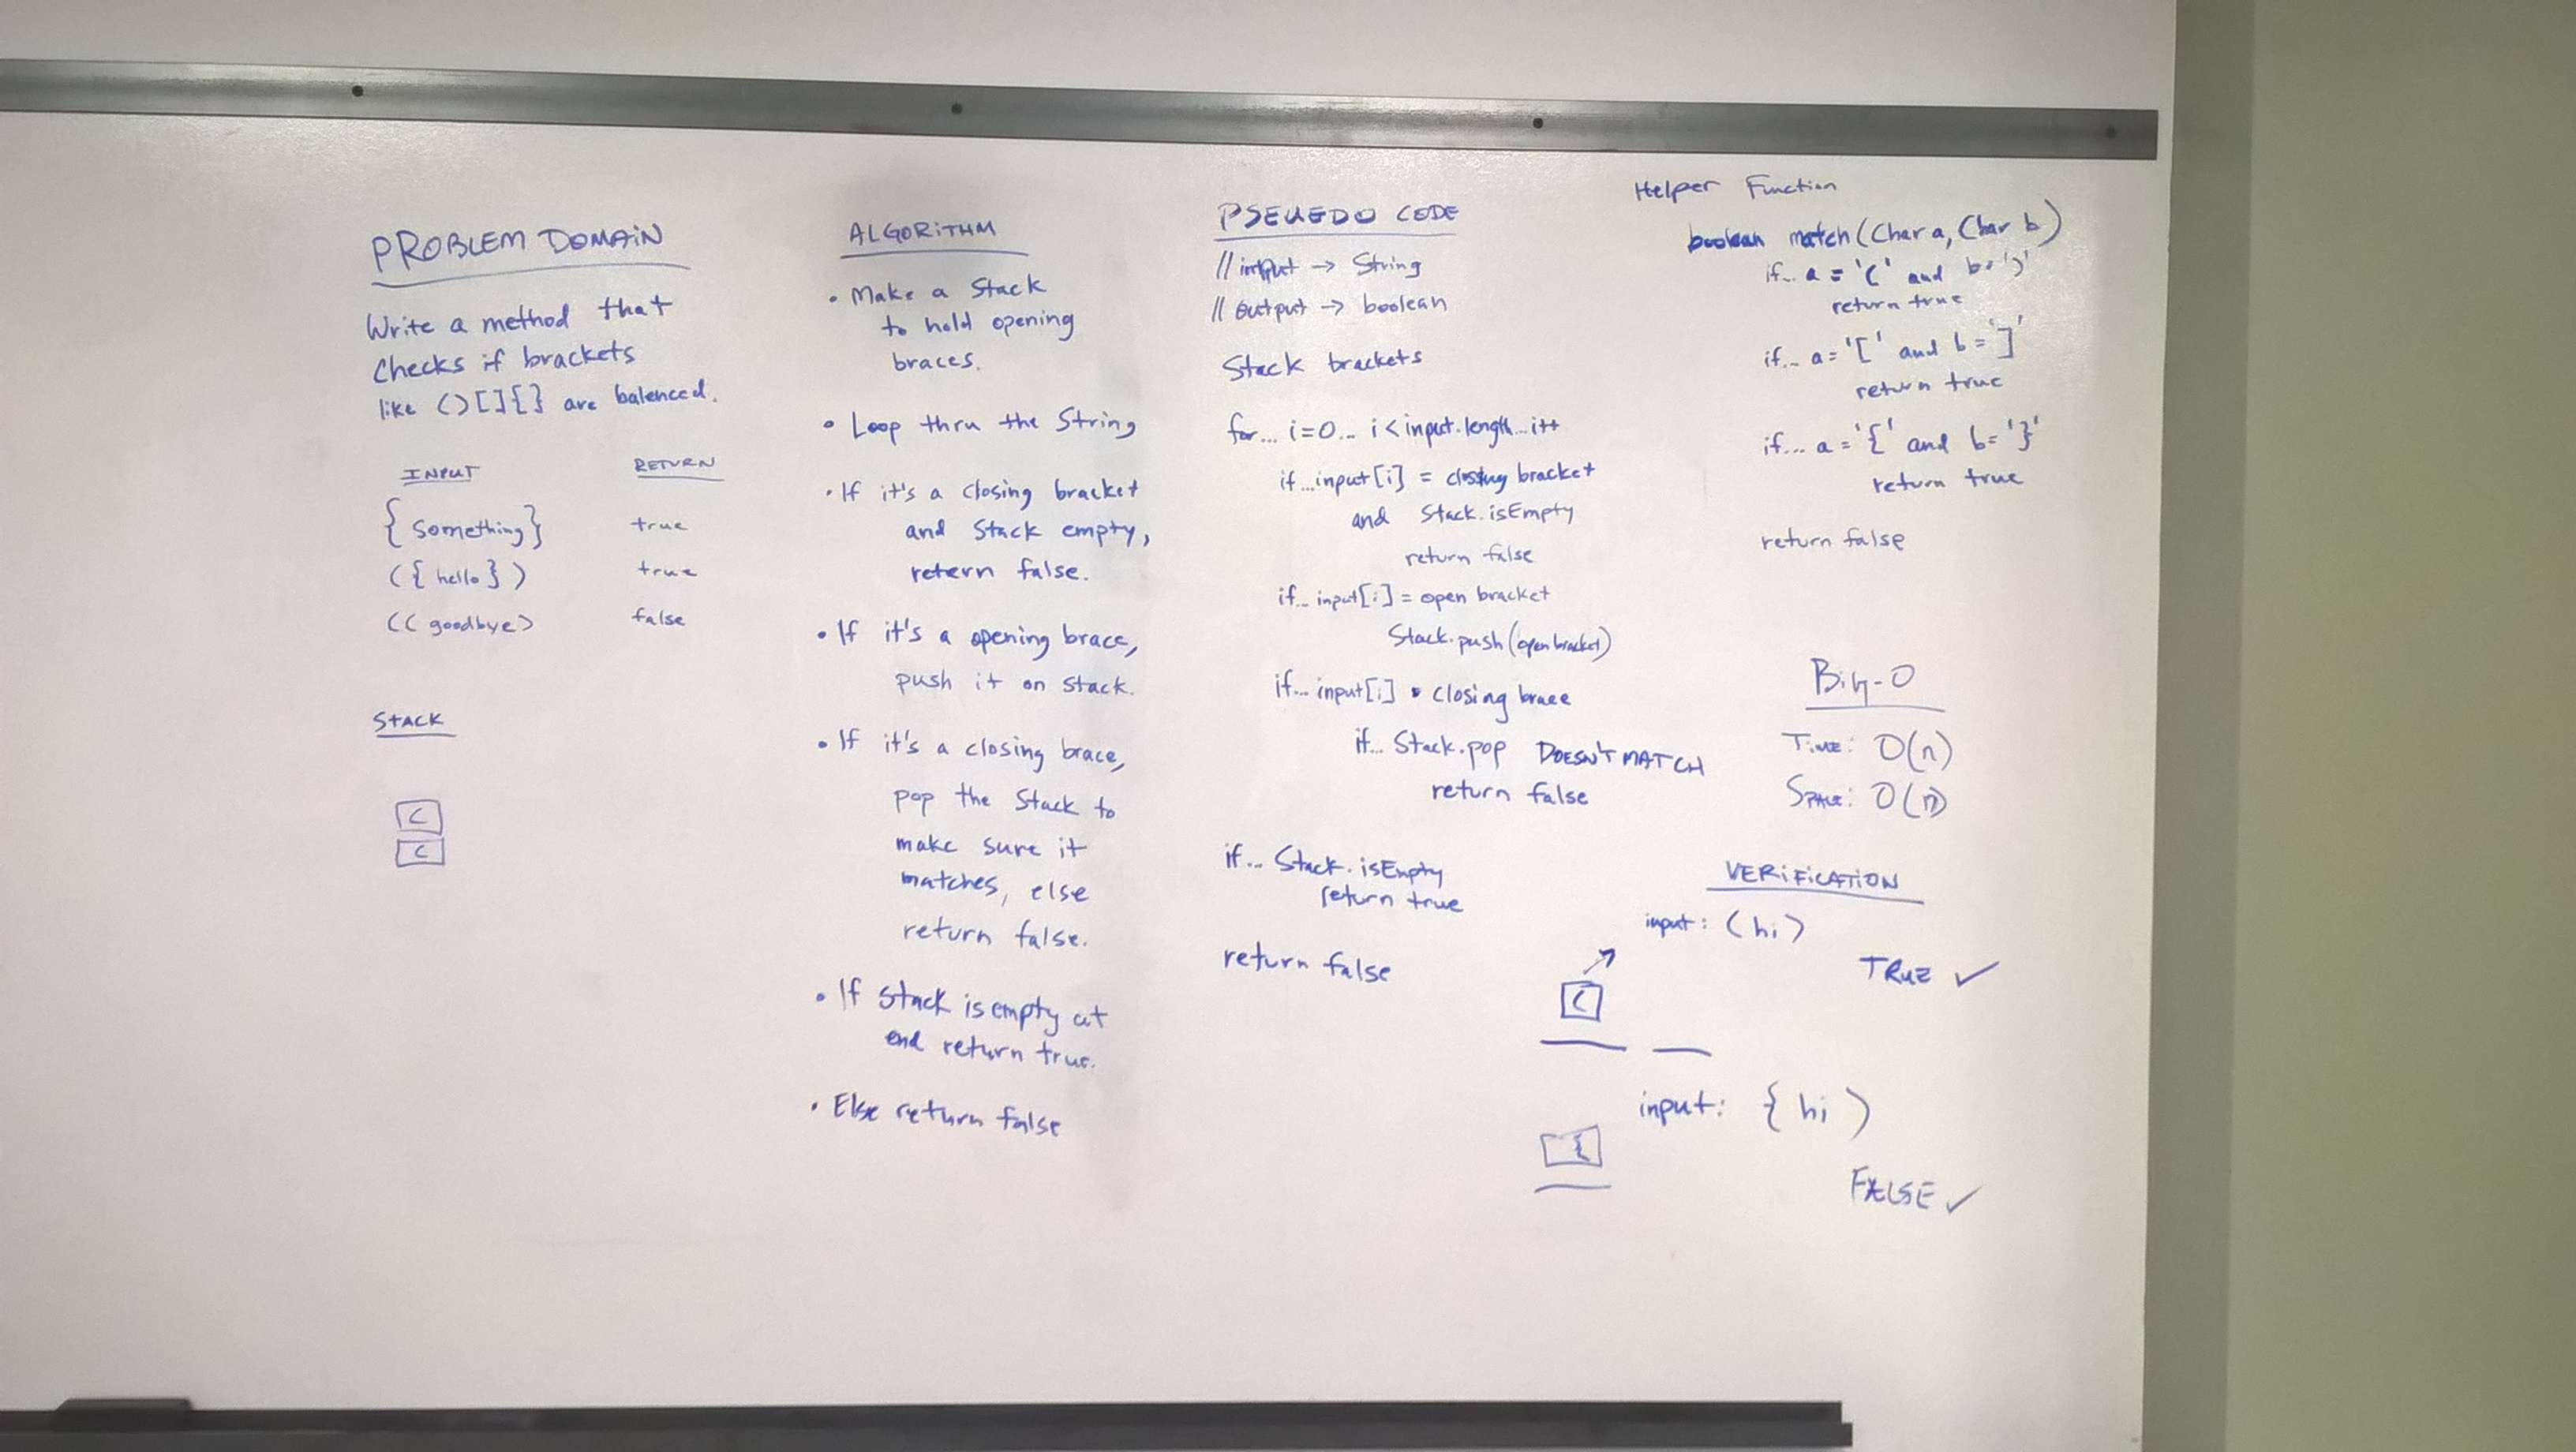 PROBLEM DOMAIN
Write a method that
Checks if brackets
like ()[]{} are balenced.
INPUT RETURN
{something} true
({hello}) true
((goodbye) false
STACK
(
(
ALGORITHM
• Make a Stack
to hold opening
braces.
• Loop thru the String
• If it's a closing bracket
and Stack empty,
retern false.
• If it's a opening brace,
push it on stack.
• If it's a closing brace,
pop the Stack to
make sure it
matches, else
return false.
• If stack is empty at
end return true.
• Else return false
PSEUEDO CODE
// intput → String
// output → boolean
Stack brackets
for... i=0... i<input.length...i++
if...input[i] = closing bracket
and Stack.isEmpty
return false
if... input[i] = open bracket
Stack.push(open bracket)
if... input[i] = closing brace
if... Stack.pop DOESN'T MATCH
return false
if... Stack.isEmpty
return true
return false
Helper Function
boolean match(Char a, Char b)
if... a = '(' and b=')'
return true
if... a='[' and b=']'
return true
if... a='{' and b='}'
return true
return false
Big-O
TIME: O(n)
SPACE: O(n)
VERIFICATION
input: (hi)
TRUE ✓
(
input: {hi)
{
FALSE ✓